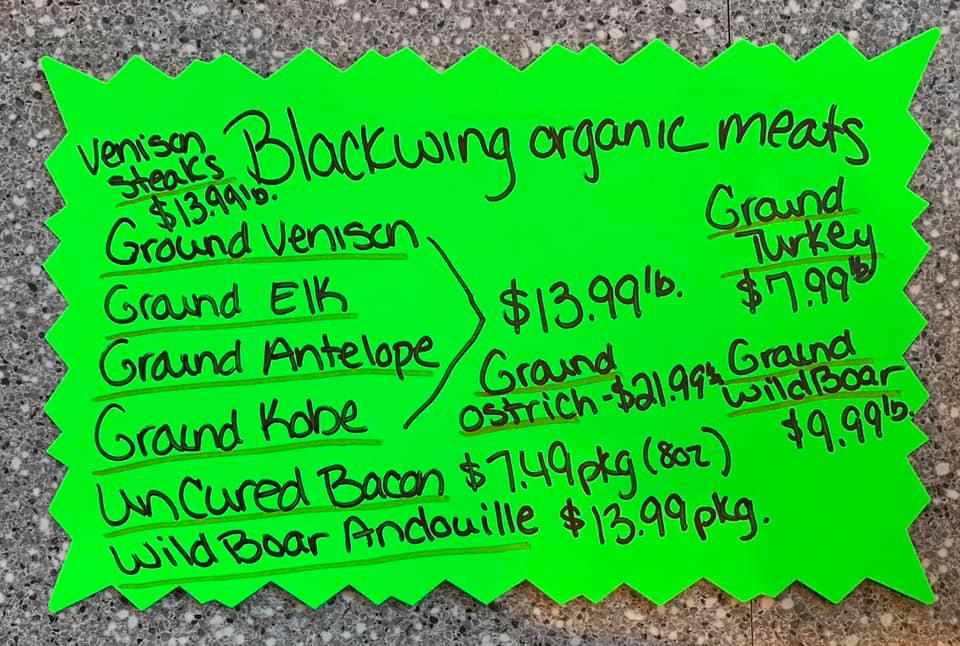 Blackwing organic meats
Venison
steaks
$13.99 lb.
Ground Venison
Ground Elk
Ground Antelope
Ground Kobe
$13.99 lb.
Ground
Turkey
$7.99 lb
Ground
ostrich - $21.99 lb
Ground
Wild Boar
$9.99 lb.
UnCured Bacon $7.49 pkg (8oz)
Wild Boar Andouille $13.99 pkg.